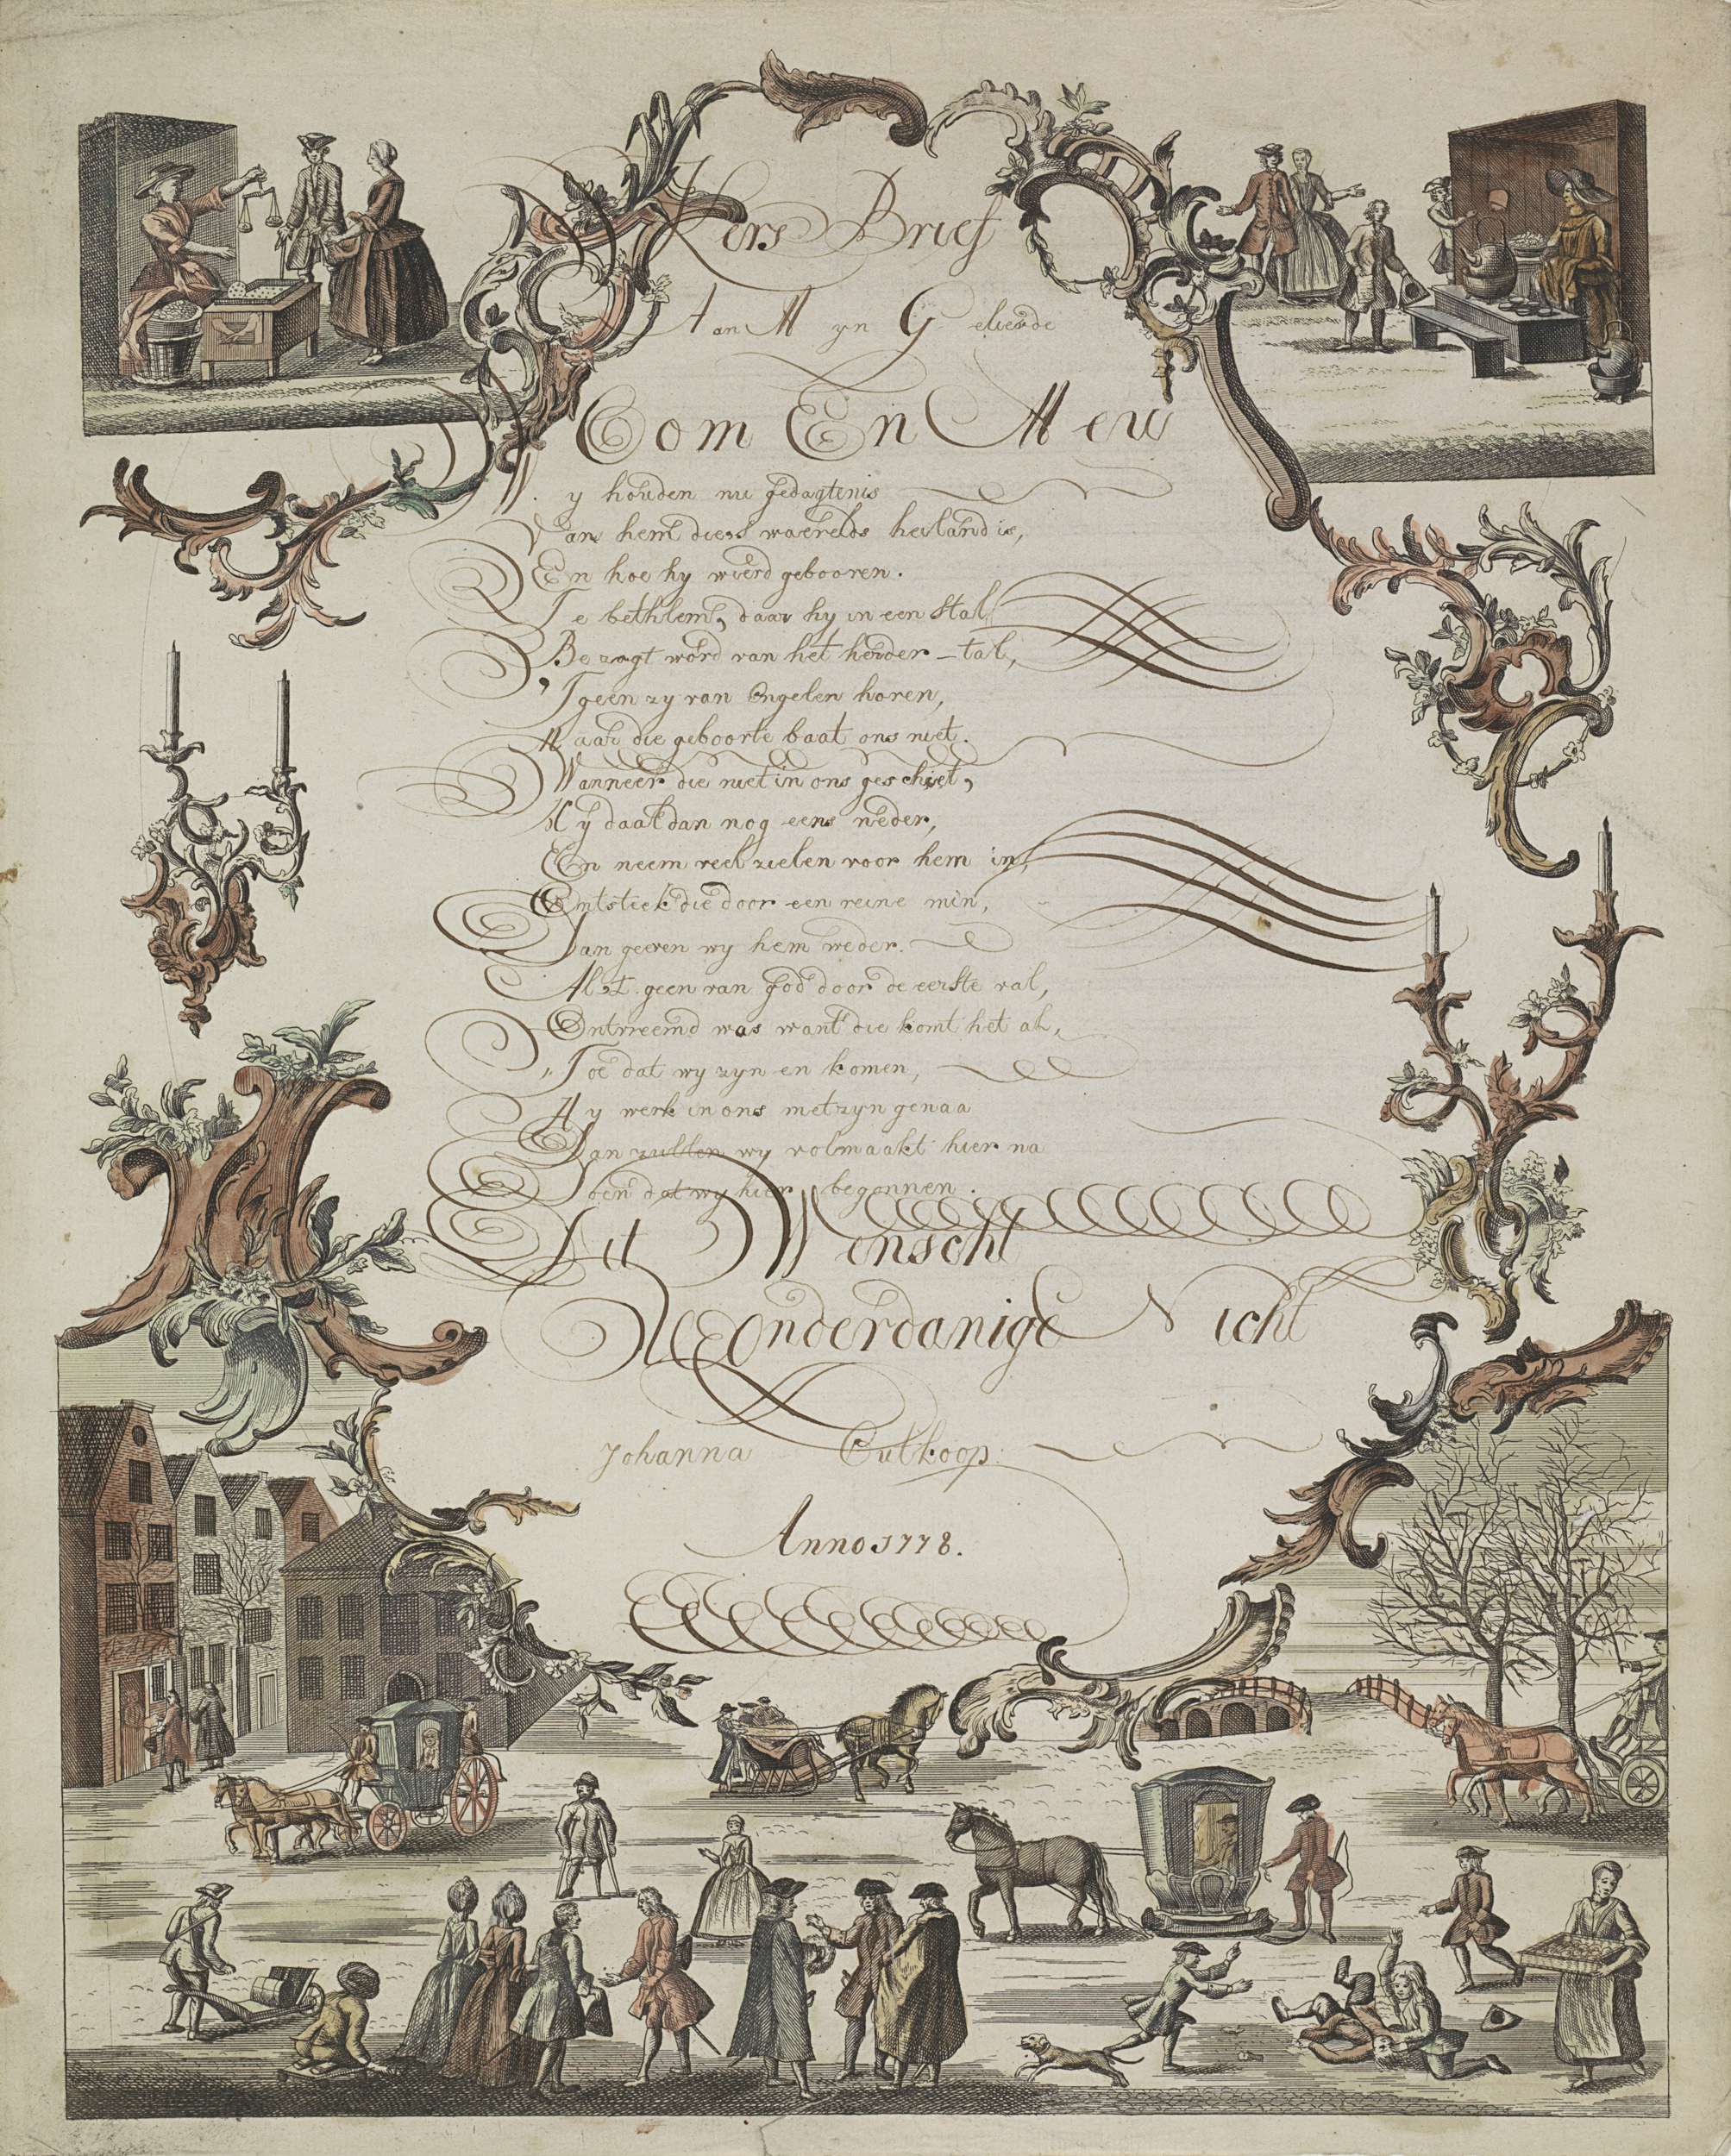 Kers Brief
Aan Myn Geliefde
Oom En Meu
Wy houden nu gedagtenis
Van hem die's waerelds heiland is,
En hoe hy wierd gebooren.
Te bethlem, daar hy in een stal
Bezogt word van het herder-tal,
'T geen zy van Engelen horen,
Maar die geboorte baat ons niet.
Wanneer die niet in ons geschiet,
Hy daal dan nog eens neder,
En neem veel zielen voor hem in,
Ontsteek die door een reine min,
Dan geeven wy hem weder.
Al 't geen van God door de eerste val,
Ontvreemd was want die komt het al,
Toe dat wy zyn en komen,
Hy werk in ons met zyn genaa
Dan zullen wy volmaakt hier na
Doen dat wy hier begonnen.
Dit Wenscht
UE Onderdanige Nicht
Johanna Outkoop.
Anno 1778.